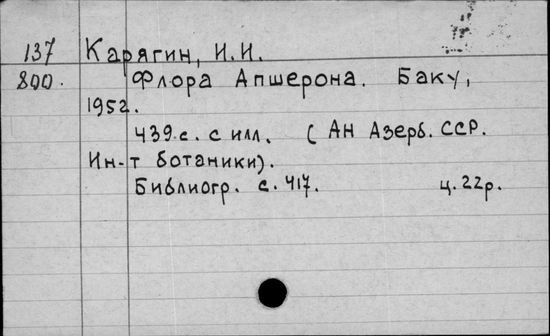 137 Карягин, И.И.
800. Флора Апшерона. Баку,
1952.
439 с. с илл. (АН Азерб. ССР.
Ин-т ботаники).
Библиогр. с. 417. ц. 22р.